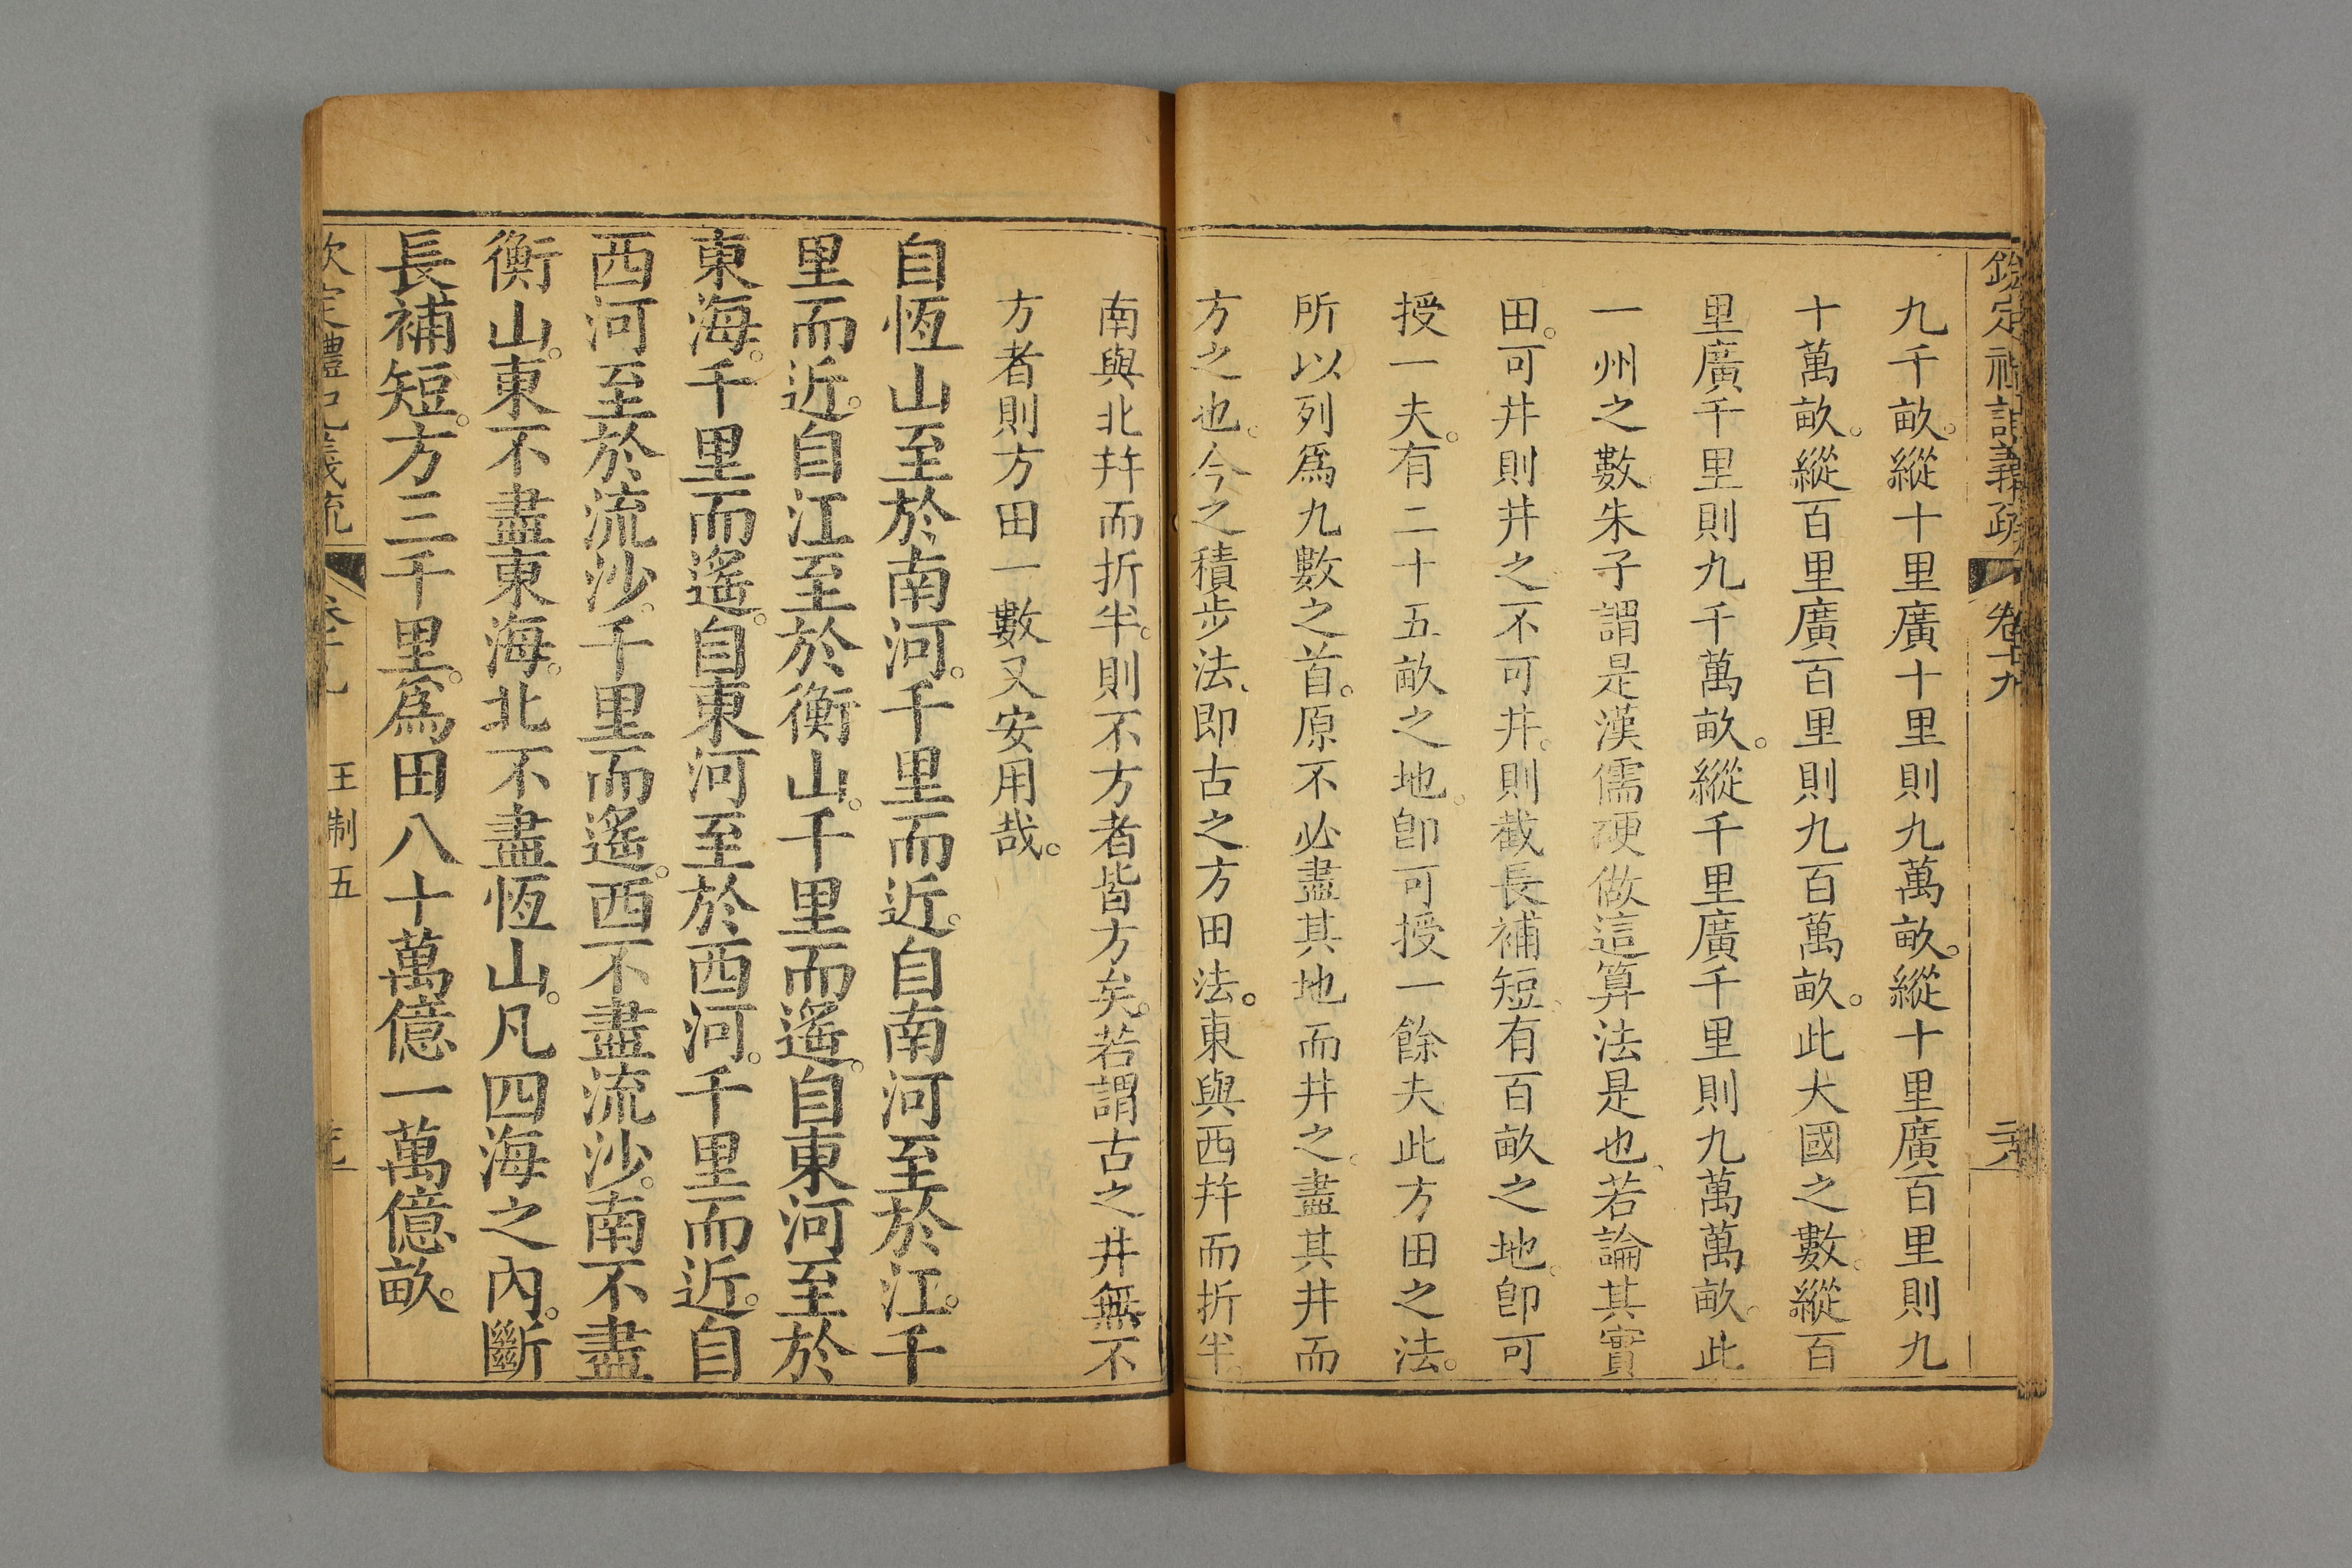 欽定禮記義疏 卷十九
九千畝。縱十里廣十里則九萬畝。縱十里廣百里則九
十萬畝。縱百里廣百里則九百萬畝。此大國之數。縱百
里廣千里則九千萬畝。縱千里廣千里則九萬萬畝。此
一州之數。朱子謂是漢儒硬做這算法是也、若論其實
田。可井則井之。不可井。則截長補短。有百畝之地。卽可
授一夫。有二十五畝之地。卽可授一餘夫此方田之法。
所以列爲九數之首。原不必盡其地而井之。盡其井而
方之也。今之積步法、即古之方田法。東與西幷而折半。
南與北幷而折半。則不方者皆方矣。若謂古之井無不
方者則方田一數又安用哉。
自恆山至於南河。千里而近。自南河至於江。千
里而近。自江至於衡山。千里而遙。自東河至於
東海。千里而遙。自東河至於西河。千里而近。自
西河至於流沙。千里而遙。西不盡流沙。南不盡
衡山。東不盡東海。北不盡恆山。凡四海之內。斷
長補短。方三千里。爲田八十萬億一萬億畝。
欽定禮記義疏 卷十九 王制五